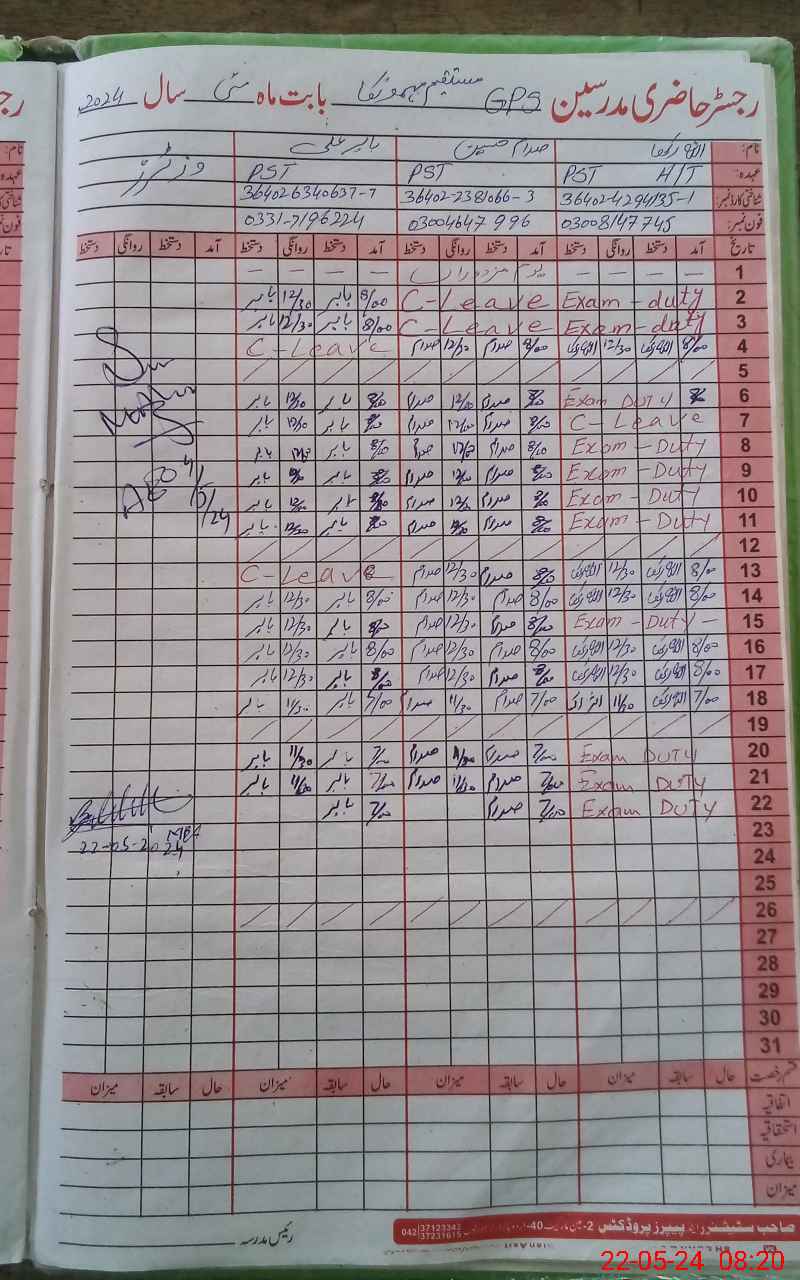 رجسٹر حاضری مدرسین GPS مستقیم مہمونکا بابت ماہ مئی سال 2024
نام: اللہ رکھا صدام حسین بابر علی وزیٹرز
عہدہ: PST H/T PST PST
شناختی کارڈ نمبر: 36402-4294135-1 36402-2381066-3 364026340637-7
فون نمبر: 03008147745 03004647996 0331-7196224
تاریخ آمد دستخط روانگی دستخط آمد دستخط روانگی دستخط آمد دستخط روانگی دستخط آمد دستخط روانگی دستخط
1 — — — — یوم مزدوراں — — — —
2 Exam-duty C-Leave 8/00 بابر 12/30 بابر
3 Exam-duty C-Leave 8/00 بابر 12/30 بابر
4 8/00 اللہ رکھا 12/30 اللہ رکھا 8/00 صدام 12/30 صدام C-Leave
5
6 Exam DUTY 8/00 صدام 12/00 صدام 8/00 بابر 12/00 بابر
7 C-Leave 8/00 صدام 12/00 صدام 8/00 بابر 12/00 بابر
8 Exam-Duty 8/00 صدام صدام 8/00 بابر بابر
9 Exam-Duty 8/00 صدام 12/00 صدام بابر بابر
10 Exam-Duty 8/00 صدام 12/00 صدام 8/00 بابر 12/00 بابر
11 Exam-Duty 8/00 صدام صدام 8/00 بابر 12/00 بابر
12
13 8/00 اللہ رکھا 12/30 اللہ رکھا 8/00 صدام 12/30 صدام C-Leave
14 8/00 اللہ رکھا 12/30 اللہ رکھا 8/00 صدام 12/30 صدام 8/00 بابر 12/30 بابر
15 Exam-Duty- 8/00 صدام 12/30 صدام 8/00 بابر 12/30 بابر
16 8/00 اللہ رکھا 12/30 اللہ رکھا 8/00 صدام 12/30 صدام 8/00 بابر 12/30 بابر
17 8/00 اللہ رکھا 12/30 اللہ رکھا 8/00 صدام 12/30 صدام 8/00 بابر 12/30 بابر
18 7/00 اللہ رکھا 11/30 اللہ رکھا 7/00 صدام 11/30 صدام 7/00 بابر 11/30 بابر
19
20 Exam DUTY 7/00 صدام 11/30 صدام 7/00 بابر 11/30 بابر
21 Exam DUTY 7/00 صدام 11/30 صدام 7/00 بابر 11/30 بابر
22 Exam DUTY 7/00 صدام 7/00 بابر
23
24
25
26
27
28
29
30
31
AEO
/5/24
MEA
22-05-2024
قسم رخصت حال سابقہ میزان حال سابقہ میزان حال سابقہ میزان حال سابقہ میزان
اتفاقیہ
استحقاقیہ
بیماری
میزان
صاحب سٹیشنرز اینڈ پیپرز پروڈکٹس 042 37123342 37237615
رئیس مدرسہ
22-05-24 08:20